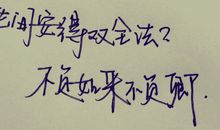 安得双全法?
不负如来不负卿.